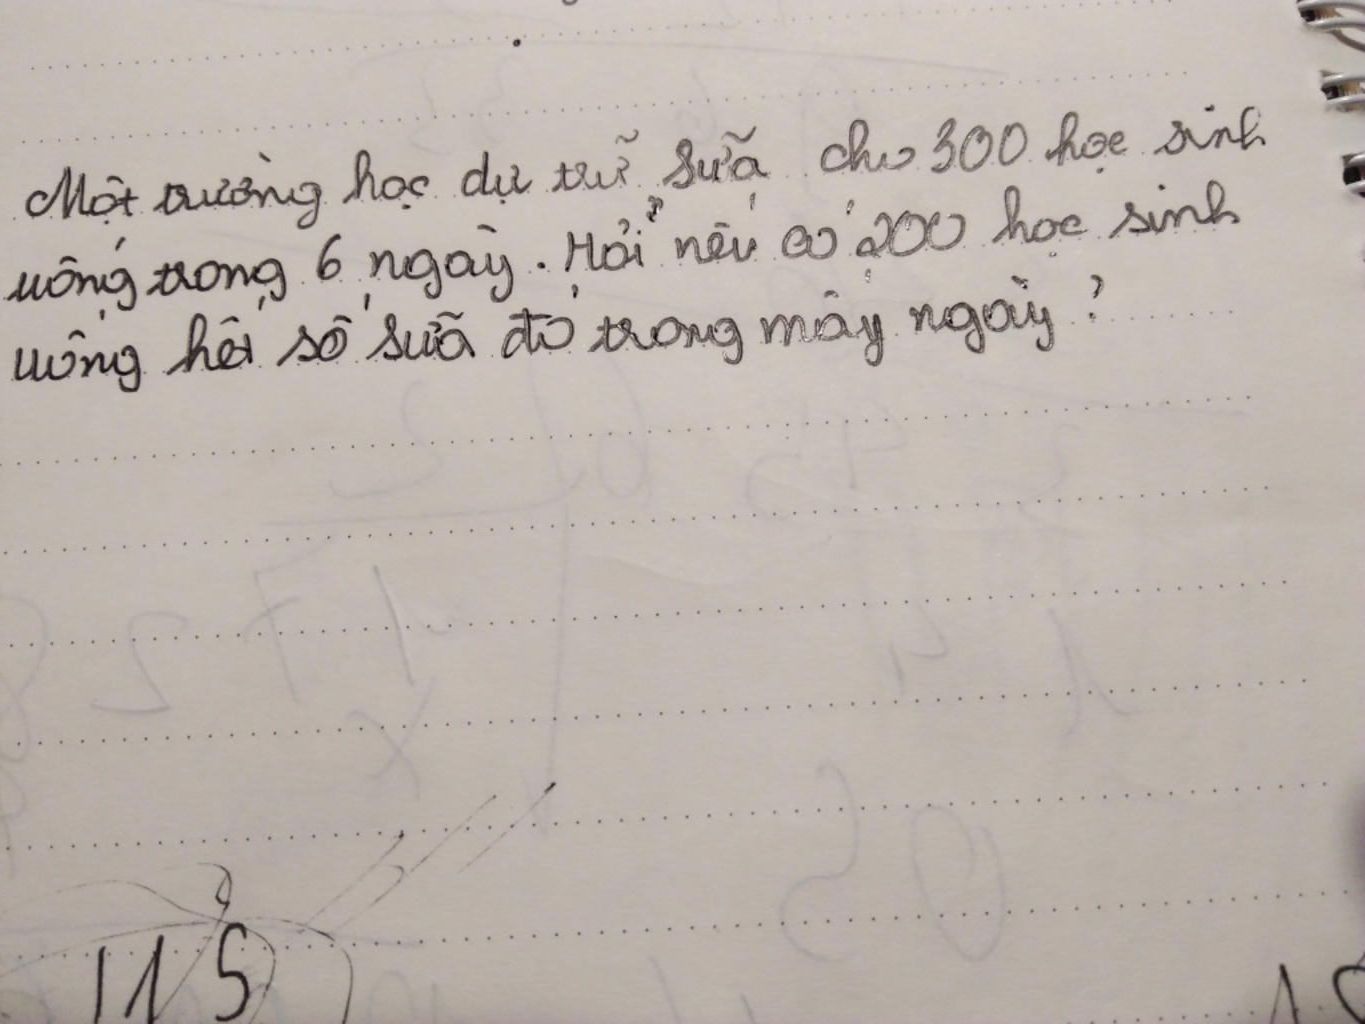 Một trường học dự trữ sữa cho 300 học sinh
uống trong 6 ngày. Hỏi nếu có 200 học sinh
uống hết số sữa đó trong mấy ngày?
115